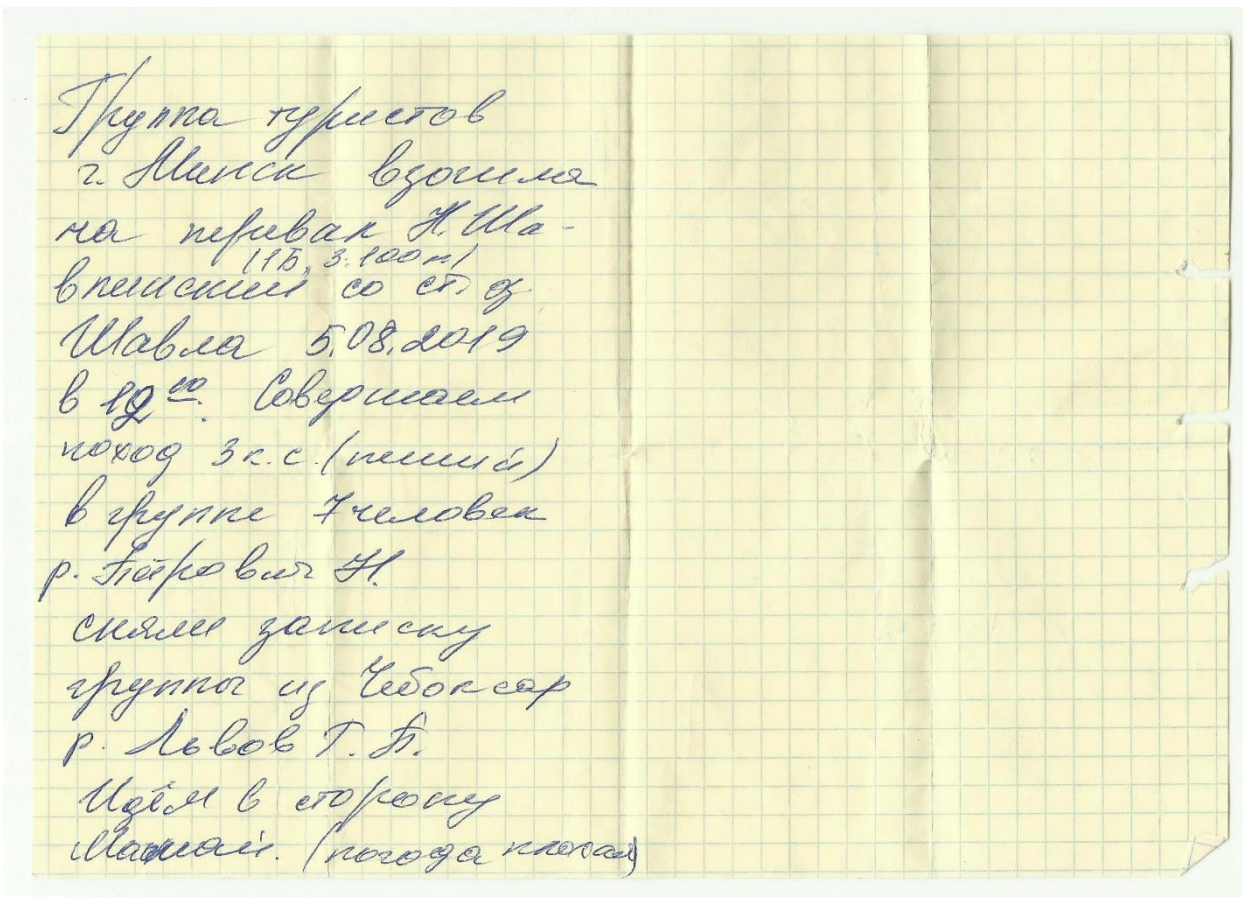 Группа туристов
г. Минск взошла
на перевал Н. Ша-
(1Б, 3.100м)
влинский со ст. оз.
Шавла 5.08.2019
в 12⁰⁰. Совершаем
поход 3 к.с. (пеший)
в группе 7 человек
р. Петрович Н.
сняли записку
группы из Чебоксар
р. Львов Г. П.
Идём в сторону
Машей. (погода плохая)